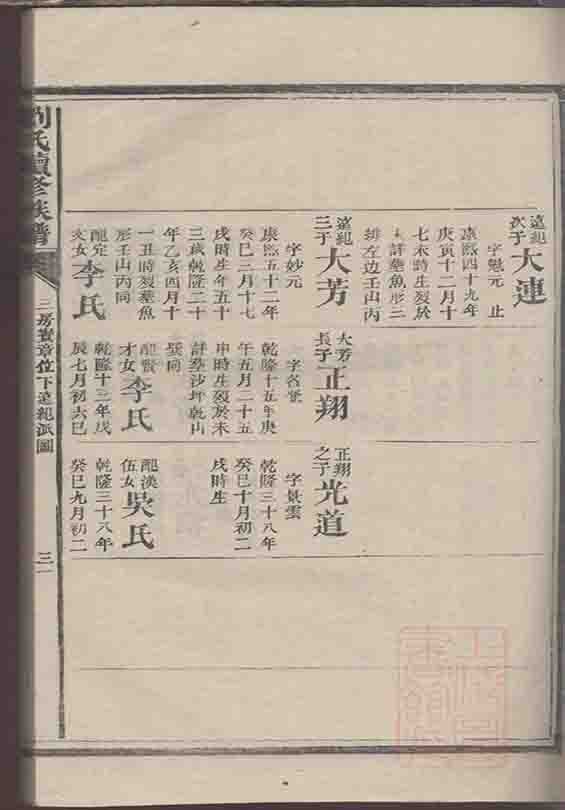 遠紀次子 大連
字魁元 止
康熙四十九年
庚寅十二月十
七未時生歿於
詳葬魚形三
排左边壬山丙
遠紀三子 大芳
字妙元
康熙五十二年
癸巳二月十七
戌時生年五十
三歲乾隆二十
年乙亥四月十
一丑時歿葬魚
形壬山丙向
龍定 女 李氏
大芳長子 正翔
字名
乾隆十五年庚
午五月二十五
申時生歿於未
詳葬沙坪乾山
巽向
龍 才女 李氏
乾隆十三年戊
辰七月初六巳
正翔之子 光道
字景雲
乾隆三十八年
癸巳十月初二
戌時生
龍漢伍女 吳氏
乾隆三十八年
癸巳九月初二
劉氏續修族譜
三房 章位下遠紀派圖
三一
上海圖書館